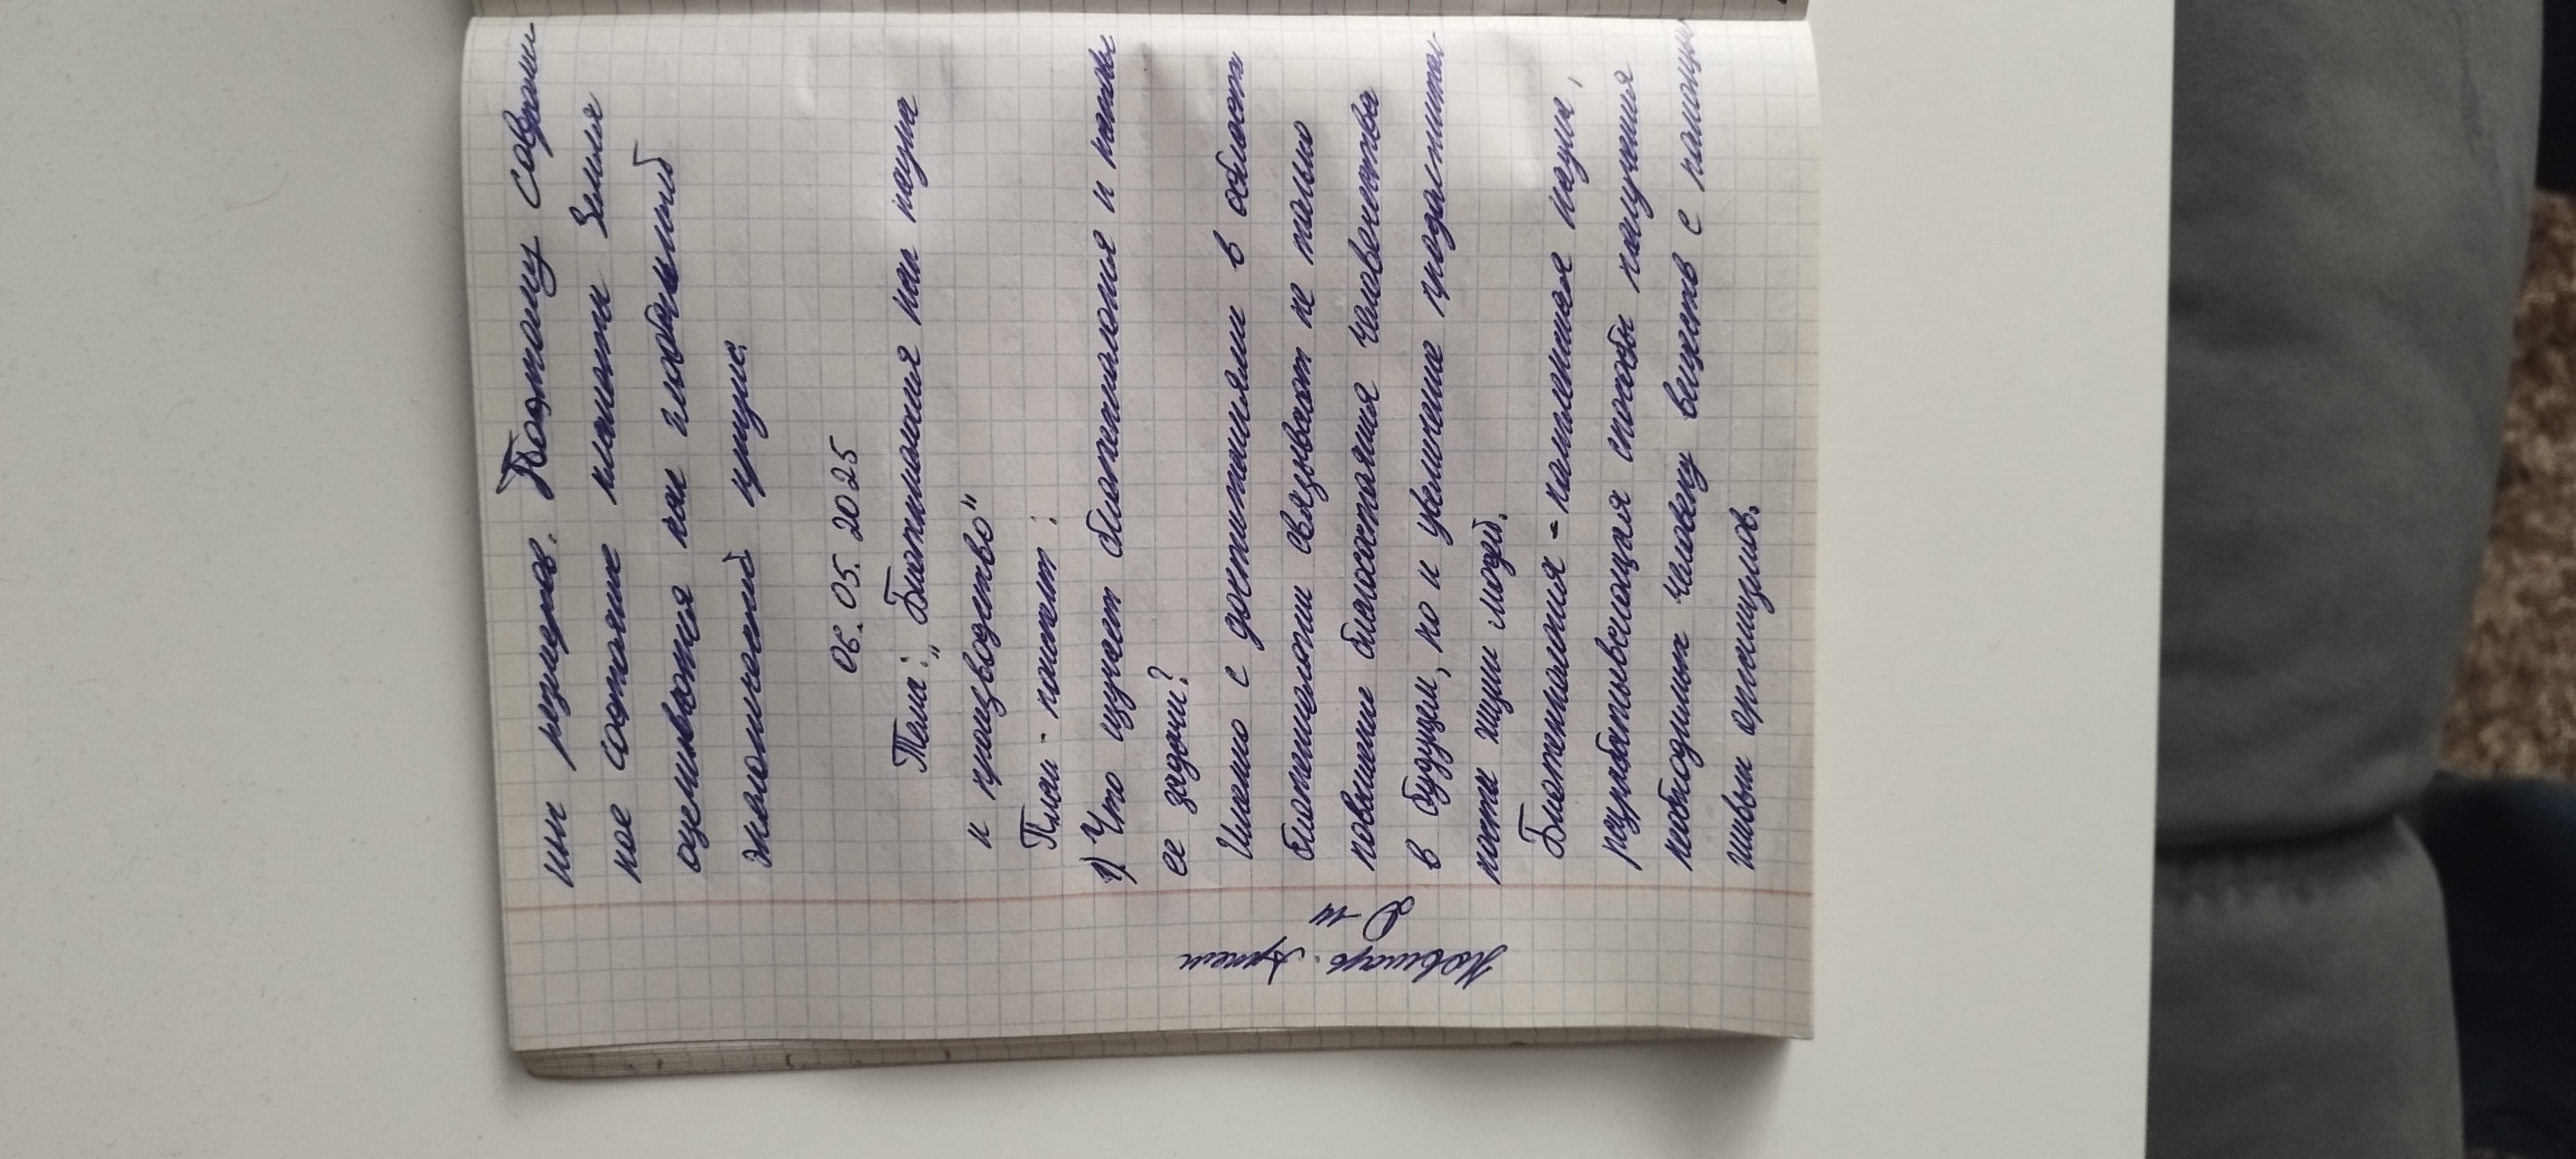 них режимов. Поэтому соврамен
ное состояние планеты Земля
оценивается как глобальный
экологический кризис.
06.05.2025
Тема: „Биотехнология как наука
и производство"
План - конспект:
1) Что изучает биотехнология и каковы
ее задачи?
Именно с достижениями в област
биотехнологии связывают не только
повшение благосостояния человечества
в будущем, но и увеличение продолжитель
ности жизни людей.
Биотехнология - комплексная наука,
разрабатывающая способы получения
необходимых человеку веществ с помощью
живых организмов.
Артем
2-М